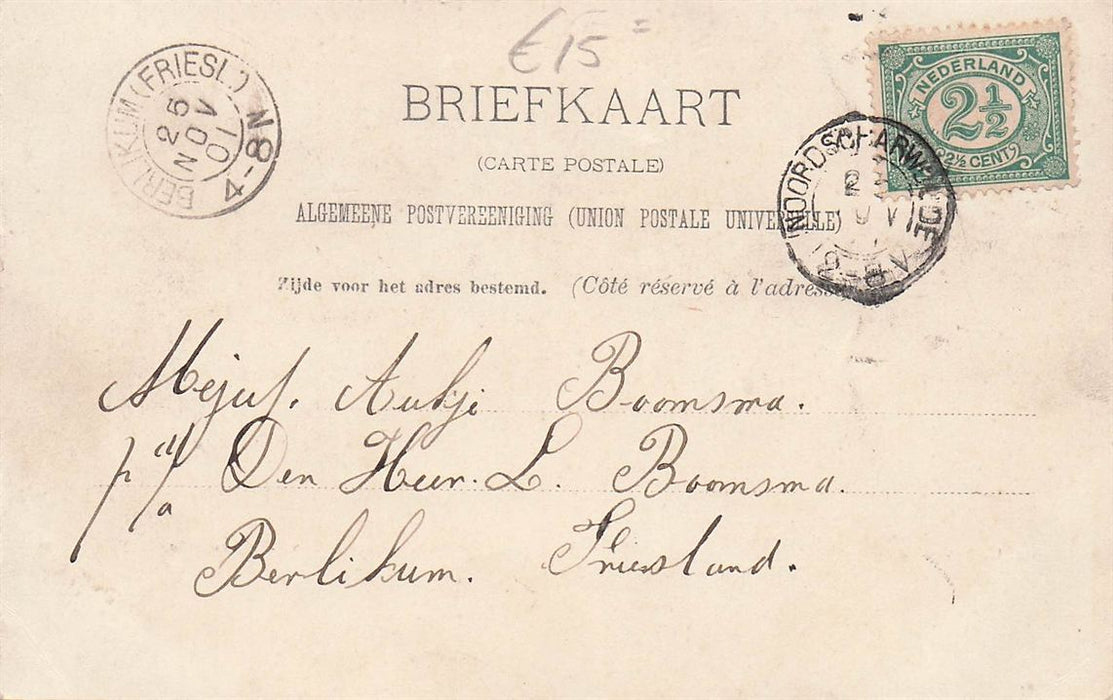 € 15 =
BRIEFKAART
(CARTE POSTALE)
ALGEMEENE POSTVEREENIGING (UNION POSTALE UNIVERSELLE)
Zijde voor het adres bestemd. (Côté réservé à l'adresse
NEDERLAND
2½
(2½ CENT)
BERLIKUM (FRIESL.)
25
NOV
01
N 8-4
NOORDSCHARWOUDE
2-8 V
Mejuf. Aukje Boomsma.
p/a Den Heer. L. Boomsma.
Berlikum. Friesland.